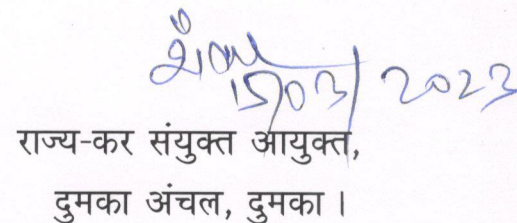 15/03/2023
राज्य-कर संयुक्त आयुक्त,
दुमका अंचल, दुमका ।